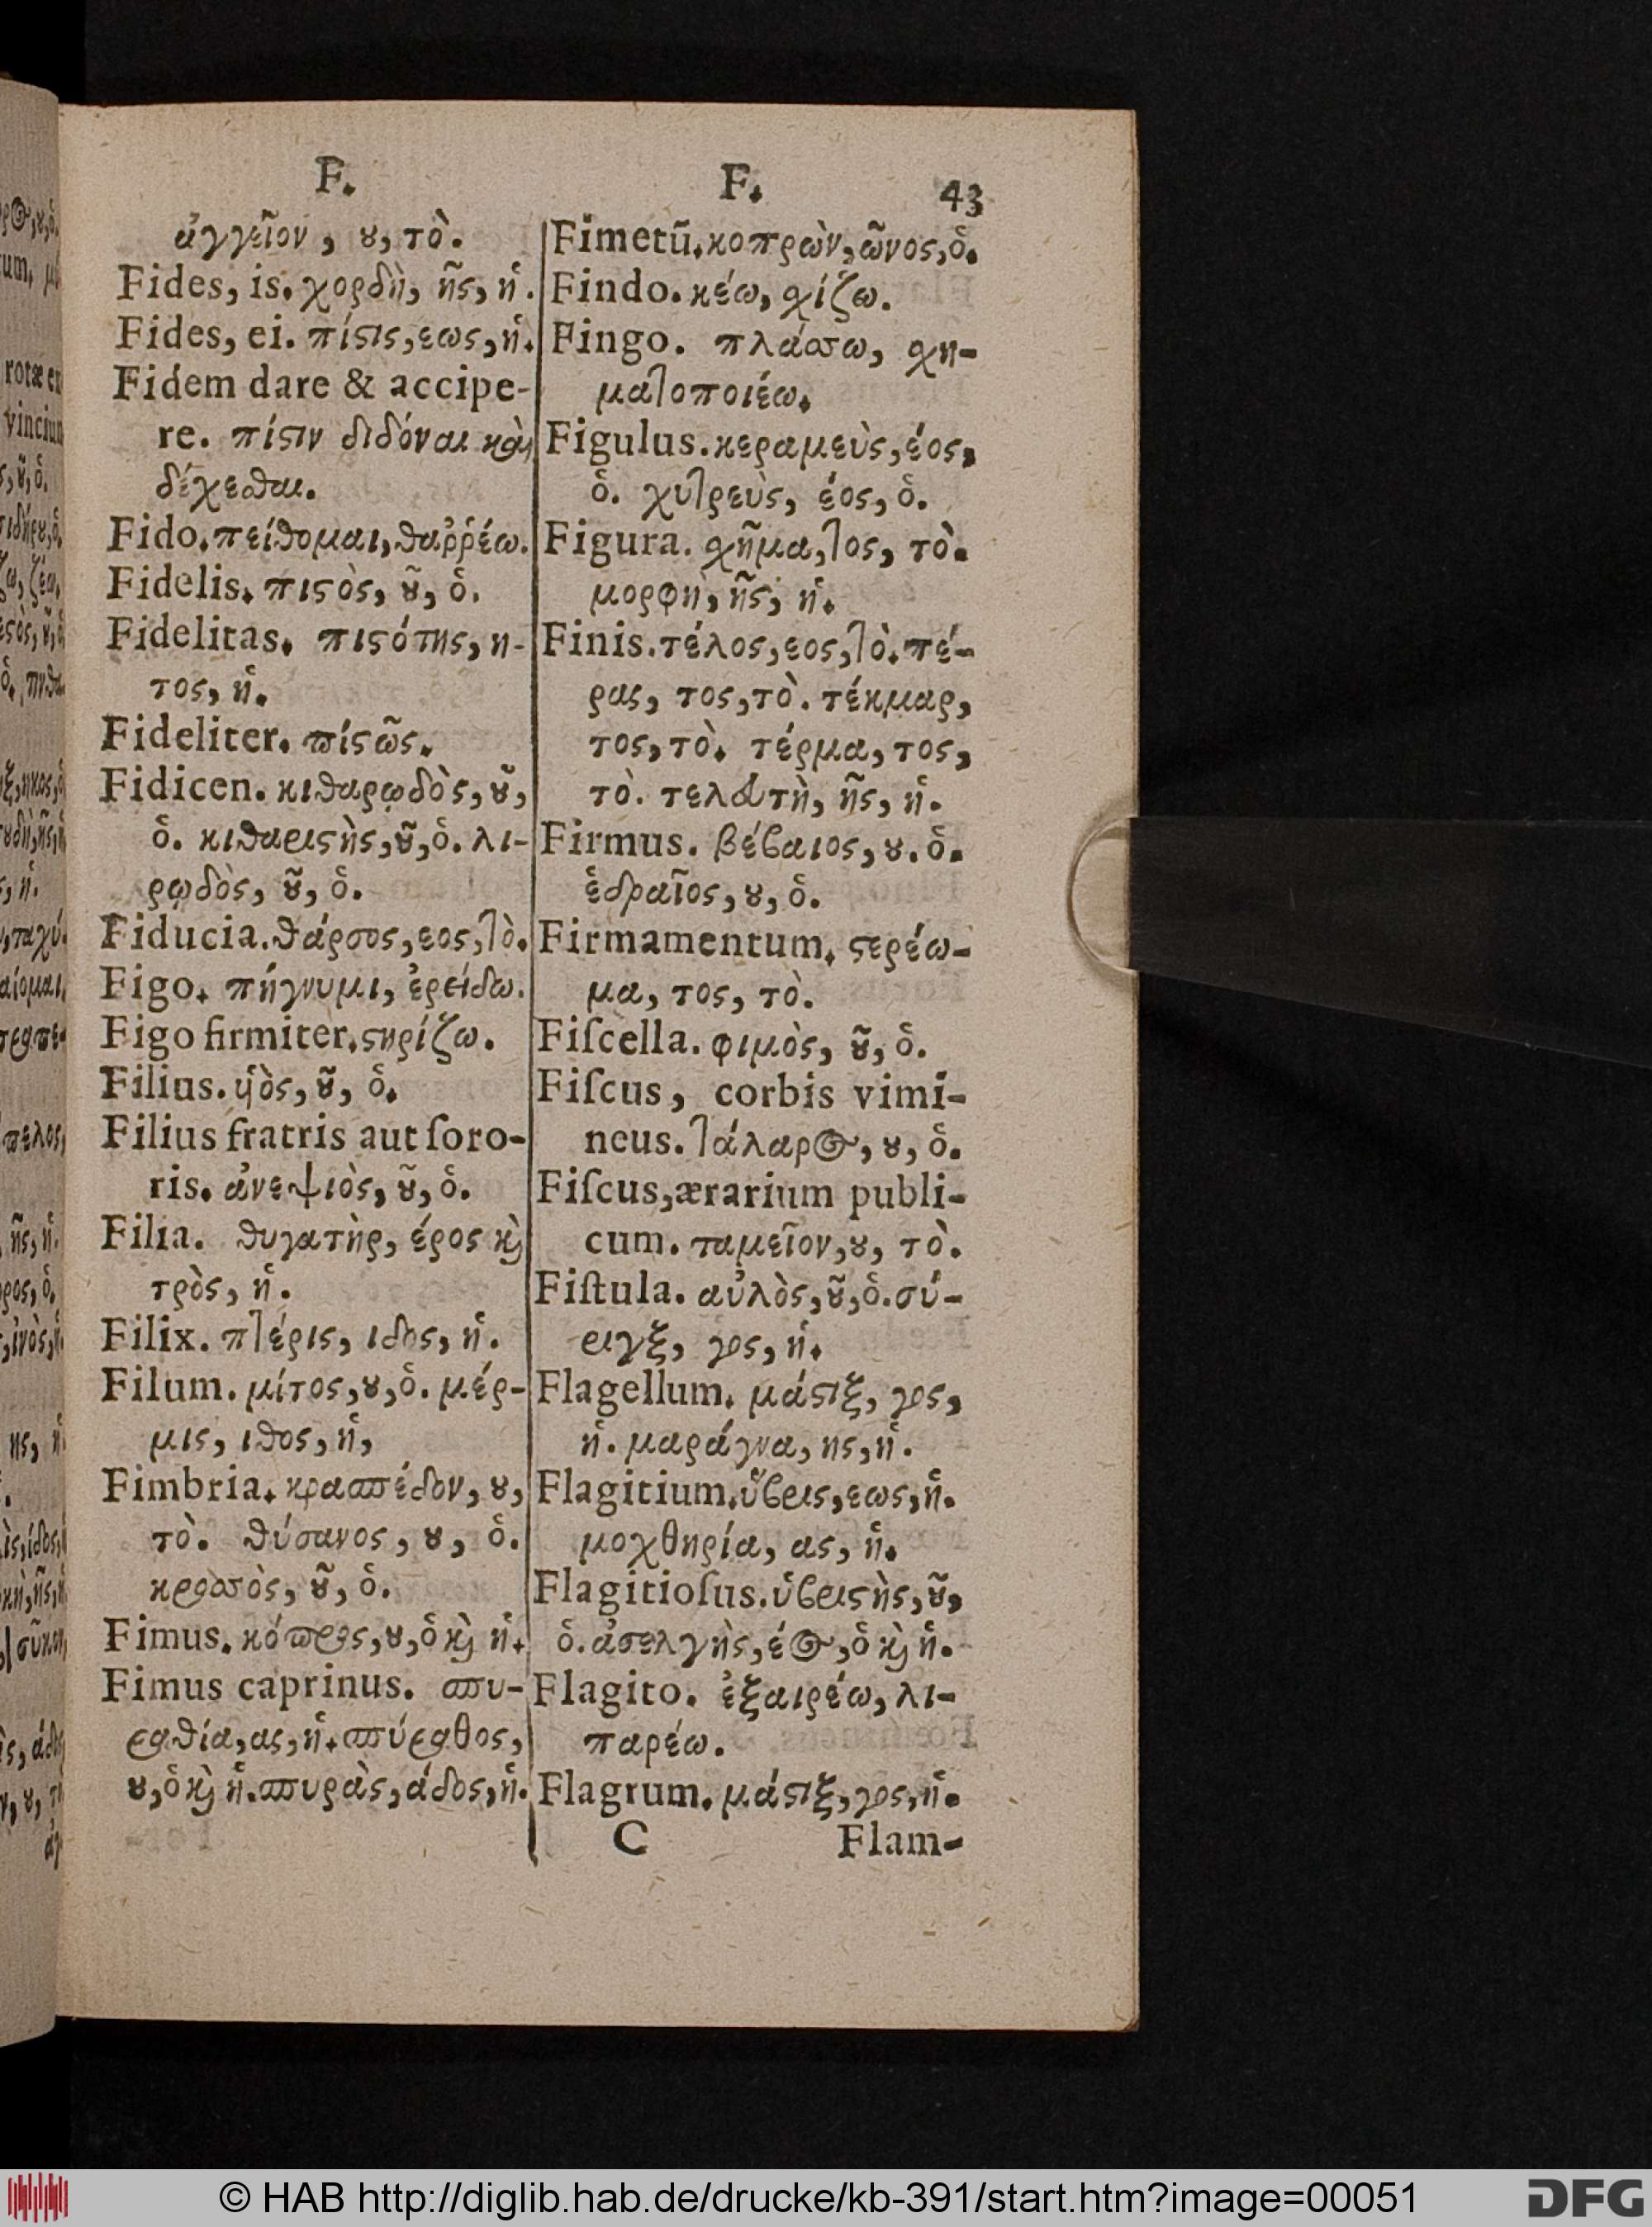 F.
ἀγγεῖον, ȣ, τὸ.
Fides, is. χορδὴ, ῆς, ἡ.
Fides, ei. πίϛις, εως, ἡ.
Fidem dare & accipe-
re. πίϛιν διδόναι καὶ
δέχεσθαι.
Fido. πείθομαι, θαῤῥέω.
Fidelis. πιϛὸς, ȣ͂, ὁ.
Fidelitas. πιϛότης, η-
τος, ἡ.
Fideliter. πίϛῶς.
Fidicen. κιθαρῳδὸς, ȣ͂,
ὁ. κιθαριϛὴς, ȣ͂, ὁ. λι-
ρῳδὸς, ȣ͂, ὁ.
Fiducia. θάρσος, εος, τὸ.
Figo. πήγνυμι, ἐρείδω.
Figo firmiter. ϛηρίζω.
Filius. ὑὸς, ȣ͂, ὁ.
Filius fratris aut ſoro-
ris. ἀνεψιὸς, ȣ͂, ὁ.
Filia. θυγατὴρ, έρος ϗ̀
τρὸς, ἡ.
Filix. πτέρις, ιδος, ἡ.
Filum. μίτος, ȣ, ὁ. μέρ-
μις, ιθος, ἡ,
Fimbria. κρασπέδον, ȣ,
τὸ. θύσανος, ȣ, ὁ.
κροσσὸς, ȣ͂, ὁ.
Fimus. κόπρος, ȣ, ὁ ϗ̀ ἡ.
Fimus caprinus. σπυ-
ραθία, ας, ἡ. σπύραθος,
ȣ, ὁ ϗ̀ ἡ. σπυρὰς, άδος, ἡ.
F. 43
Fimetũ. κοπρὼν, ῶνος, ὁ.
Findo. κέω, σχίζω.
Fingo. πλάσσω, σχη-
ματοποιέω.
Figulus. κεραμεὺς, έος,
ὁ. χυτρεὺς, έος, ὁ.
Figura. σχῆμα, τος, τὸ.
μορφὴ, ῆς, ἡ.
Finis. τέλος, εος, τὸ. πέ-
ρας, τος, τὸ. τέκμαρ,
τος, τὸ. τέρμα, τος,
τὸ. τελευτὴ, ῆς, ἡ.
Firmus. βέβαιος, ȣ. ὁ.
ἑδραῖος, ȣ, ὁ.
Firmamentum. ϛερέω-
μα, τος, τὸ.
Fiſcella. φιμὸς, ȣ͂, ὁ.
Fiſcus, corbis vimi-
neus. τάλαρος, ȣ, ὁ.
Fiſcus, ærarium publi-
cum. ταμεῖον, ȣ, τὸ.
Fiſtula. αὐλὸς, ȣ͂, ὁ. σύ-
ριγξ, γος, ἡ.
Flagellum. μάϛιξ, γος,
ἡ. μαράγνα, ης, ἡ.
Flagitium. ὕβρις, εως, ἡ.
μοχθηρία, ας, ἡ.
Flagitioſus. ὑβριϛὴς, ȣ͂,
ὁ. ἀσελγὴς, έος, ὁ ϗ̀ ἡ.
Flagito. ἐξαιρέω, λι-
παρέω.
Flagrum. μάϛιξ, γος, ἡ.
C Flam-
© HAB http://diglib.hab.de/drucke/kb-391/start.htm?image=00051
DFG